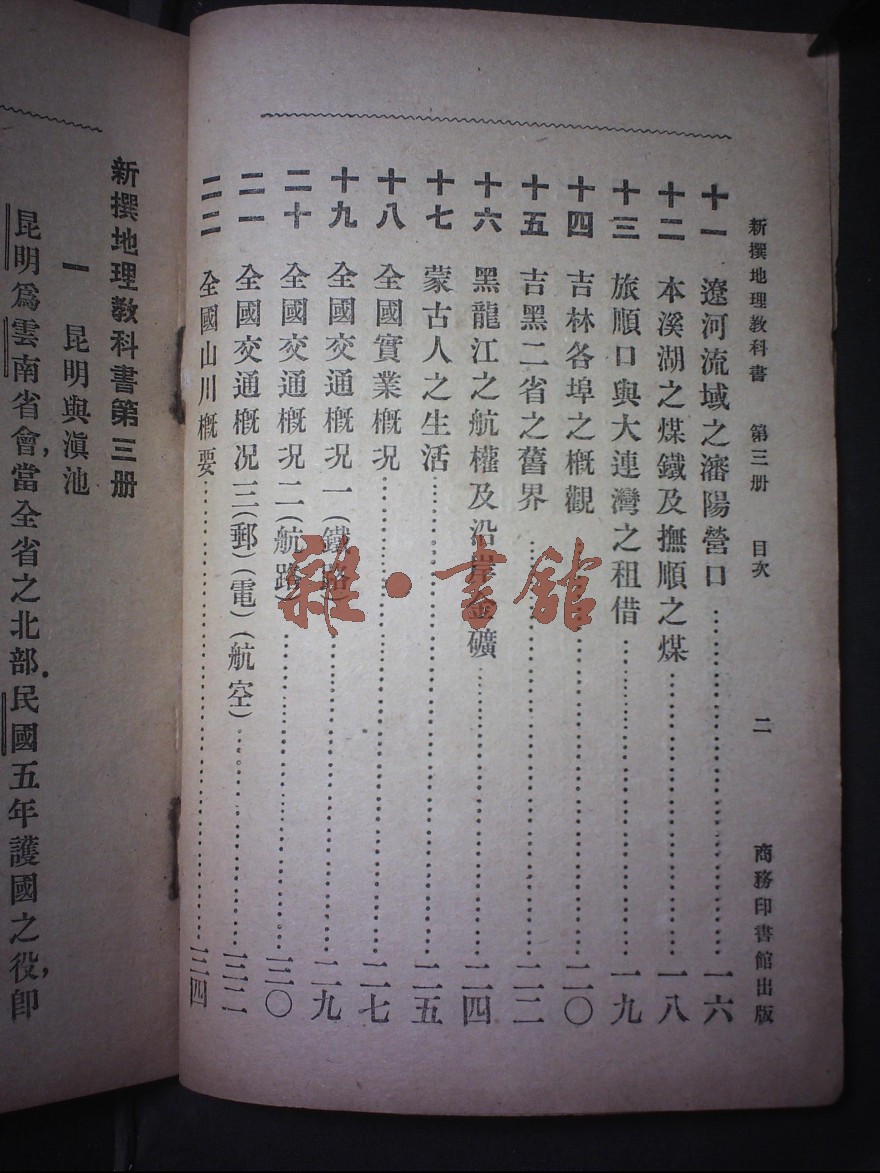 新撰地理敎科書 第三册 目次 二 商務印書館出版
十一 遼河流域之瀋陽營口 一六
十二 本溪湖之煤鐵及撫順之煤 一八
十三 旅順口與大連灣之租借 一九
十四 吉林各埠之槪觀 二〇
十五 吉黑二省之舊界 二二
十六 黑龍江之航權及沿岸金礦 二四
十七 蒙古人之生活 二五
十八 全國實業槪況 二七
十九 全國交通槪況一(鐵路) 二九
二十 全國交通槪況二(航路) 三〇
二一 全國交通槪况三(郵)(電)(航空) 三二
二二 全國山川槪要 三四
雜·書館
新撰地理敎科書第三册
一 昆明與滇池
昆明爲雲南省會,當全省之北部.民國五年護國之役,卽